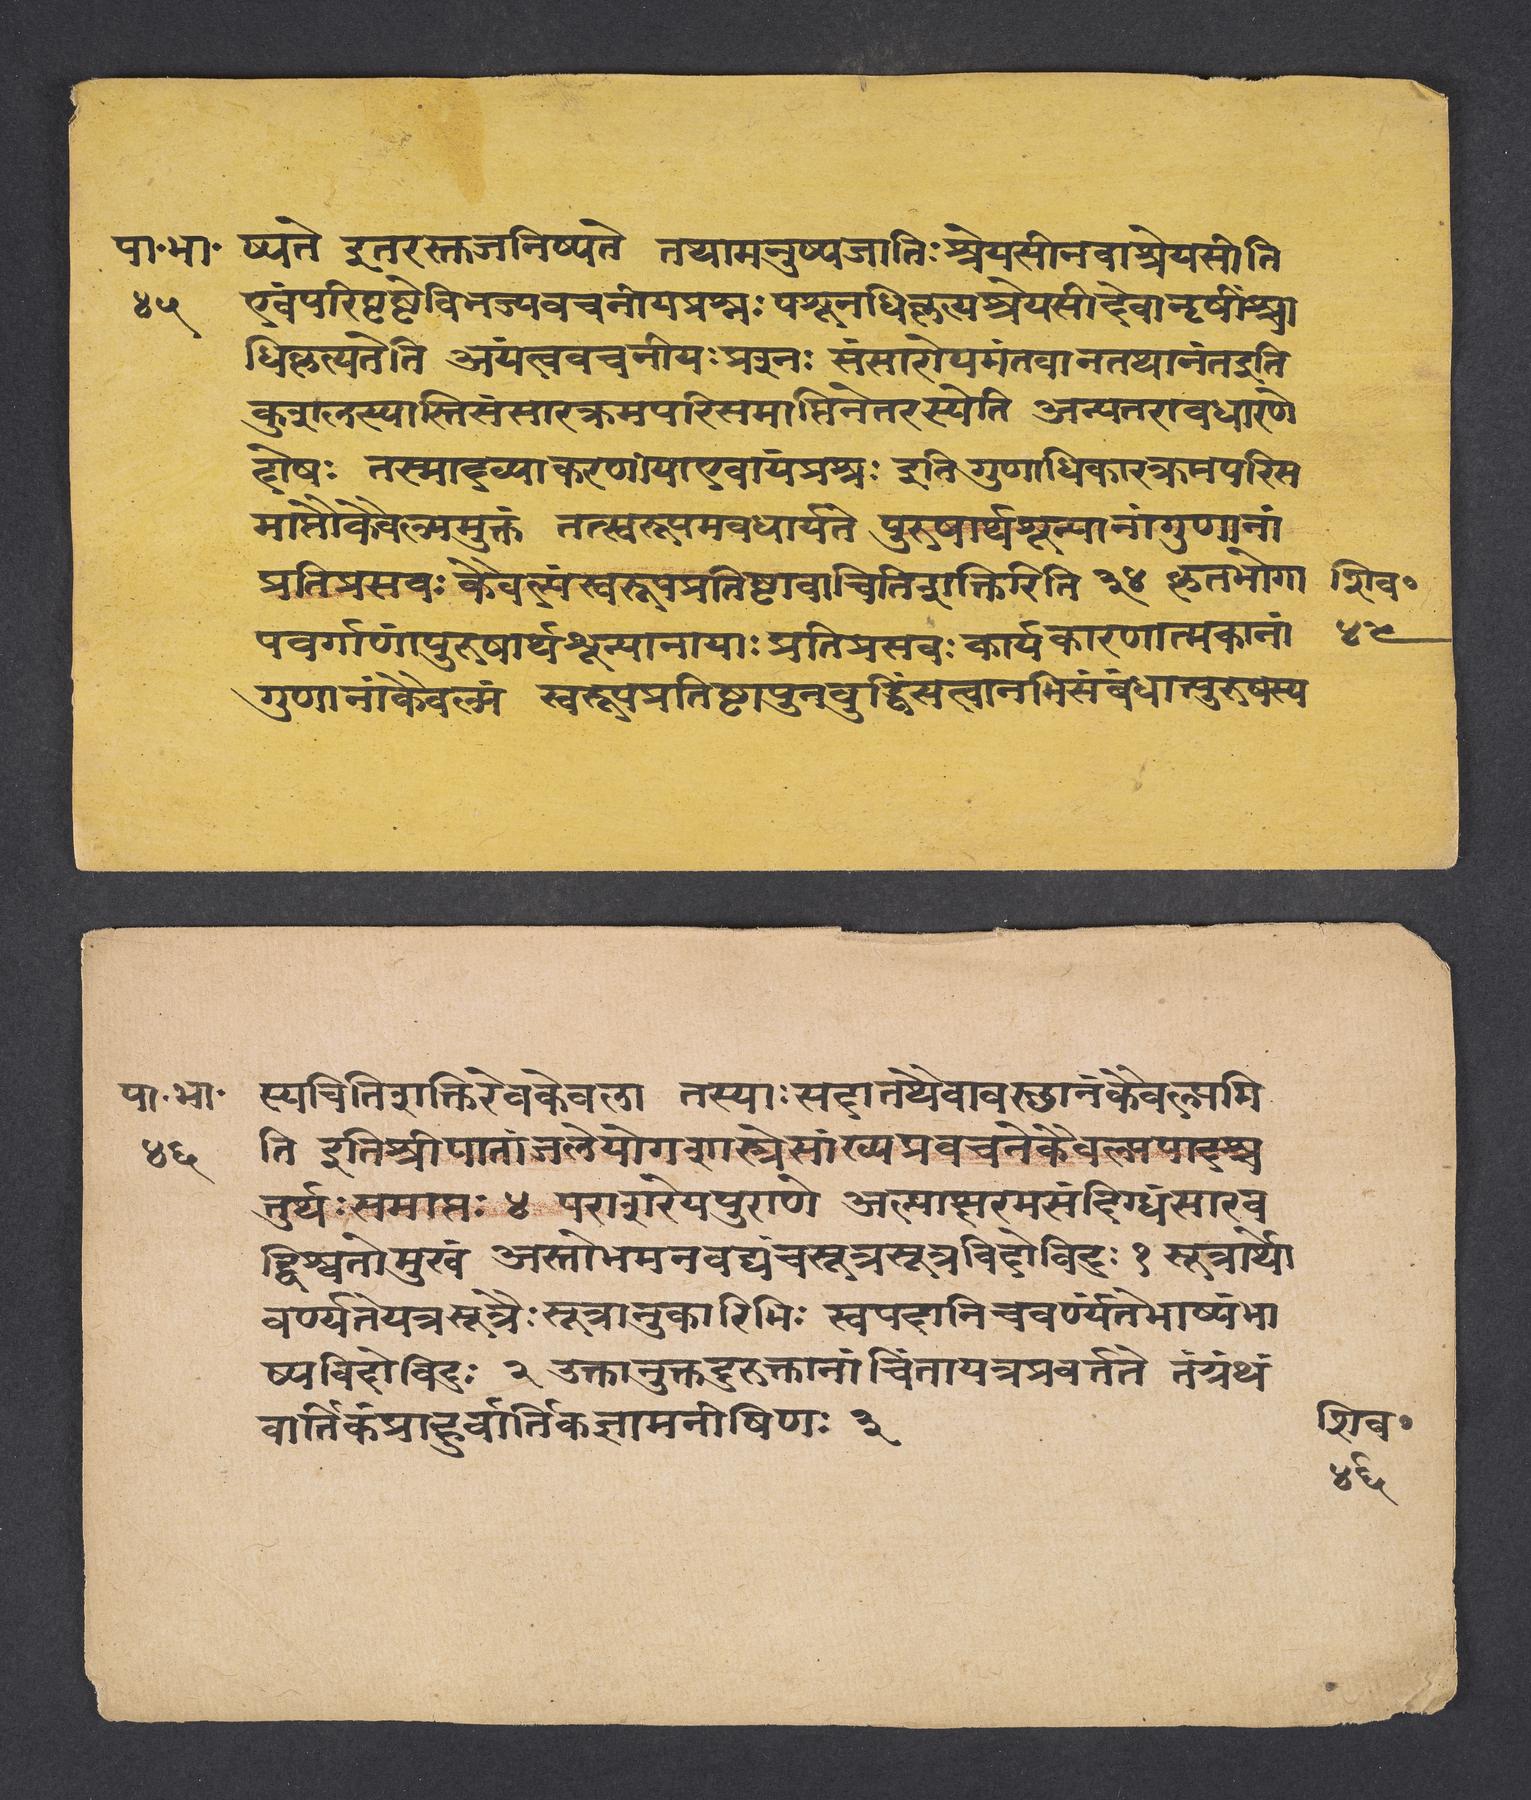 पा॰भा॰ ष्यते इतरस्तुजनिष्यते तथामनुष्यजातिःश्रेयसीनवाश्रेयसीति
४५ एवंपरिपृष्टेविभज्यवचनीयप्रश्नः पशूनधिकृत्यश्रेयसीदेवानृषींश्चा
धिकृत्यतेति अयंत्ववचनीयःप्रश्नः संसारोयमंतवानतथानंतइति
कुशलस्यास्तिसंसारक्रमपरिसमाप्तिनेतरस्येति अन्यतरावधारणे
दोषः तस्माद्व्याकरणीयाएवायंप्रश्नः इति गुणाधिकारक्रमपरिस
माप्तौकैवल्यमुक्तं तत्स्वरूपमवधार्यते पुरुषार्थशून्यानांगुणानां
प्रतिप्रसवः कैवल्यंस्वरूपप्रतिष्ठावाचितिशक्तिरिति ३४ कृतभोगा शिव॰
पवर्गाणांपुरुषार्थशून्यानायाःप्रतिप्रसवःकार्यकारणात्मकानां ४५
गुणानांकैवल्यं स्वरूपप्रतिष्ठापुनबुद्धिसत्वानभिसंबंधात्पुरुषस्य
पा॰भा॰ स्यचितिशक्तिरेवकेवला तस्याःसदातथैवावस्थानंकैवल्यमि
४६ ति इतिश्रीपातांजलेयोगशास्त्रेसांख्यप्रवचनेकैवल्यपादश्च
तुर्थःसमाप्तः ४ पराशरेयपुराणे अल्पाक्षरमसंदिग्धंसारव
द्विश्वतोमुखं अस्तोभमनवद्यंचसूत्रसूत्रविदोविदः १ सूत्रार्थो
वर्ण्यतेयत्रसूत्रैःसूत्रानुकारिभिः स्वपदानिचवर्ण्यंतेभाष्यंभा
ष्यविदोविदुः २ उक्तानुक्तदुरुक्तानांचिंतायत्रप्रवर्तते तंग्रंथं
वार्तिकंप्राहुर्वार्तिकज्ञामनीषिणः ३ शिव॰
४६